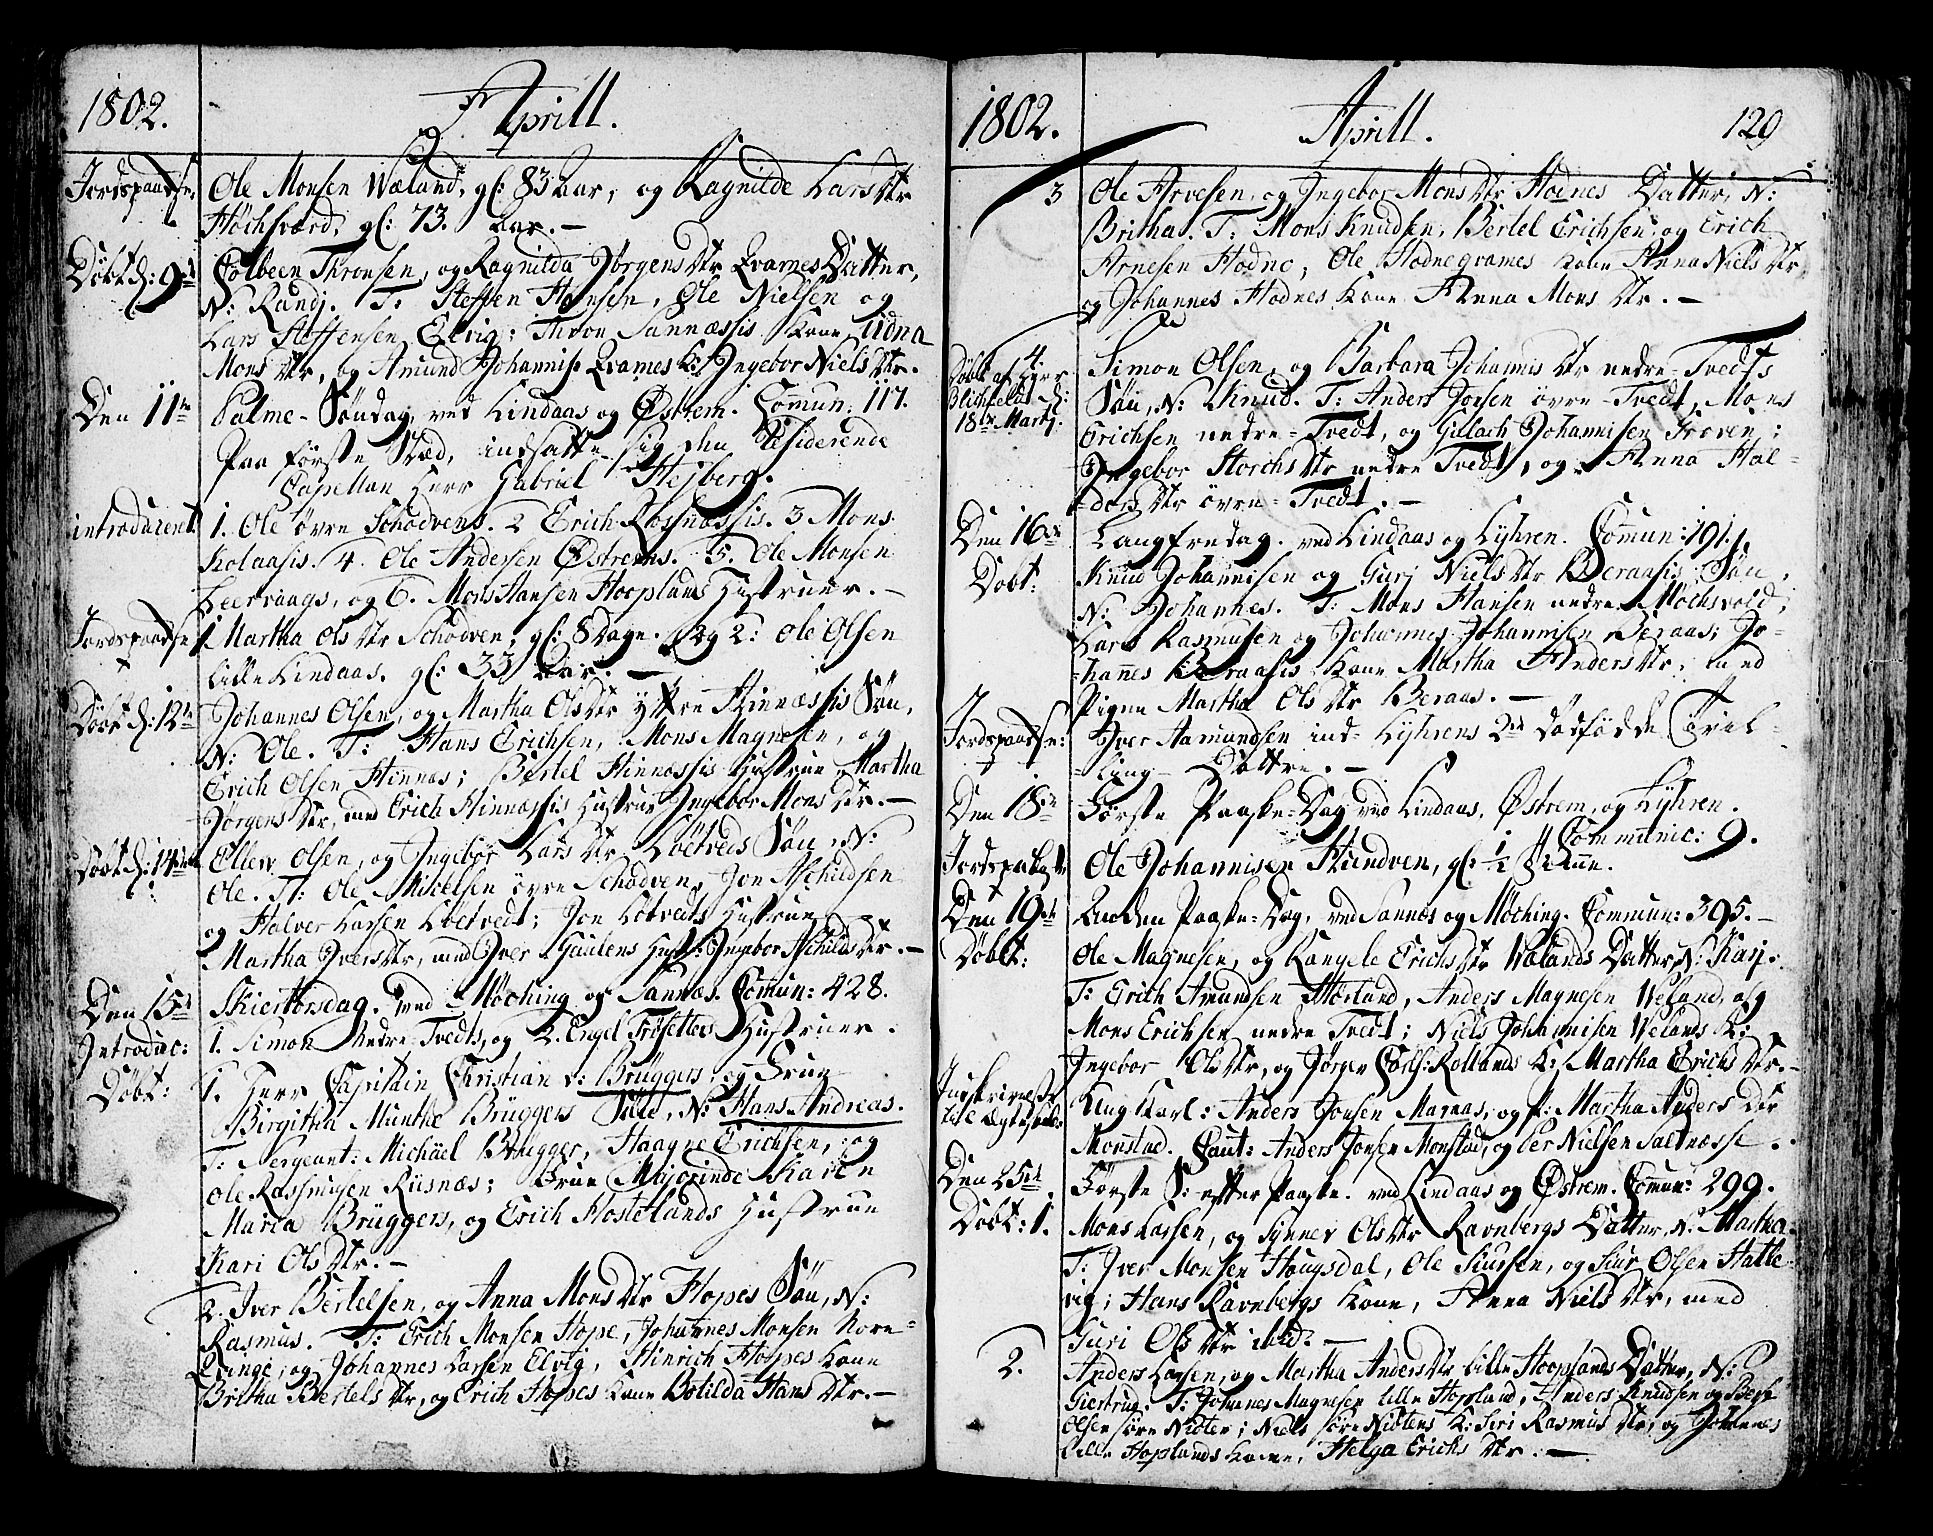 1802. Aprill.
Jordspaadse: Ole Monsen Wæland, gl: 83 Aar, og Ragnilde Lars Dtr
Høchsværd, gl: 73. Aar. –
Døbt d: 9de Colbeen Thronsen, og Ragnilda Jørgens Dtr Qvames Datter,
N: Randj. T: Steffen Hansen, Ole Nielsen og
Lars Steffensen Elvig; Thron Sannæssis Kone Udna
Mons Dtr, og Amund Johannis: Qvames K: Ingebor Niels Dtr.
Den 11te Palme-Søndag, ved Lindaas og Østrem. Comun: 117.
Paa første Stæd, indsatte sig den Residerende
Capellan Herr Gabriel Hejberg.
introduceret 1. Ole øvre Schodvens. 2 Erich Rosnæssis. 3 Mons
Kolaasis. 4. Ole Andersen Østrems. 5. Ole Monsen
Leervaags, og 6. Mons Hansen Hooplands Hustruer. –
Jordspaadse 1. Martha Ols Dtr Schodven, gl: 8 Dage. Og 2: Ole Olsen
Lille Lindaas. gl: 33 Aar. –
Døbt d: 12te Johannes Olsen, og Martha Ols Dtr yttre Hinnæssis Søn,
N: Ole. T: Hans Erichsen, Mons Magnesen, og
Erich Olsen Hinnæs; Bertel Hinnæssis Hustrue Martha
Jørgens Dtr, med Erich Hinnæssis Hustrue Ingebor Mons Dtr. –
Døbt d: 14de Ellew Olsen, og Ingebor Lars Dtr Løtveds Søn N:
Ole. T: Ole Mikkelsen øvre Schodven, Jon Aschildsen
og Halver Larsen Løetvedt; Jon Løtvedts Hustrue
Martha Ivers Dtr, med Iver Haukens Hust: Ingebor Aschilds Dtr. –
Den 15de Skiertorsdag. ved Møching og Sannæs. Comun: 428.
Introduc: 1. Simon Nedre-Tvedts, og 2. Engel Frøsettes Hustruer.
Døbt: 1. Herr Capitain Christian v: Brüggers, og Frue
Birgitha Munthe Brüggers Søn, N: Hans Andreas.
T: Sergeant: Michäel Brügger, Haagne Erichsen, og
Ole Rasmusen Risnæs; Frue Majorinde Karen
Maria Brüggers, og Erich Fosselands Hustrue
Kari Ols Dtr. –
2. Iver Bertelsen, og Anna Mons Dtr Hopes Søn, N:
Rasmus. T: Erich Monsen Hope, Johannes Monsen Nore-
Qvinge, og Johannes Larsen Elvig, Hinrich Hopes Kone
Britha Bertels Dtr, og Erich Hopes Kone Botilda Hans Dtr. –
1802. Aprill. 129
3 Ole Arvesen, og Ingebor Mons Dtr Hodnes Datter, N:
Britha. T: Mons Knudsen, Bertel Erichsen og Erich
Arnesen Hodne; Ole Hodneqvames Kone Anna Niels Dtr
og Johannes Hodnes Kone Anna Mons Dtr. –
4. Simon Olsen, og Barbara Johannis Dtr nedre-Tvedts
Døbt af
18de Martj: Søn, N: Knud. T: Anders Jonsen øvre-Tvedt, Mons
Erichsen nedre-Tvedt, og Gulach Johannisen Froven;
Ingebor Storchs Dtr nedre Tvedt, og Anna Hal-
-dors Dtr øvre-Tvedt. –
Den 16de Langfredag. ved Lindaas og Lyhren. Comun: 191.
Døbt: Knud Johannisen og Gurj Niels Dtr Beraasis Søn,
N: Johannes. T: Mons Hansen nedre Møchsvold;
Lars Rasmusen og Johannes Johannisen Beraas; Jo-
-hannes Beraasis Kone Martha Anders Dtr, med
Pigen Martha Ols Dtr Beraas. –
Jordspaadse: Iver Aamundsen ind-Lyhrens 2de dødfødde Tvil-
-ling-Døttre. –
Den 18de Første Paaske-Dag ved Lindaas, Østrem, og Lyhren.
Communic: 9.
Jordspaket Ole Johannisen Hundven, gl: 1/2
Den 19de Anden Paaske-Dag, ved Sannæs og Møching. Commun: 395. –
Døbt: Ole Magnesen, og Rangele Erichs Dtr Wælands Datter, N: Kasj.
T: Erich Amundsen Hørland, Anders Magnesen Veland, og
Mons Erichsen nedre Tvedt; Niels Johannisen Velands K:
Ingebor Ols Dtr, og Jørgen Carls: Rollands K: Martha Erichs Dtr. –
til Ægteskab: Ung Karl: Anders Jonsen Marnas, og P: Martha Anders Dtr
Monstad. Caut: Anders Jonsen Monstad, og Per Nielsen Saltnæsse.
Den 25de Første S: efter Paaske. ved Lindaas og Østrem. Comun: 299.
Døbt: 1. Mons Larsen, og Synnev Ols Dtr Ravnbergs Datter, N: Martha.
T: Iver Monsen Hougsdal, Ole Siursen, og Siur Olsen Hatle-
vig; Hans Ravnbergs Kone, Anna Niels Dtr, med
Guri Ols Dtr ibid: –
2. Anders Larsen, og Martha Anders Dtr Lille Hooplands Datter, N:
Giertrud. T: Johannes Magnesen Lille Hopland, Anders Knudsen og
Olsen søre Nidten; Niels søre Nidtens K: Siri Rasmus Dtr, og Johannes
Lille Hoplands Kone, Helga Erichs Dtr. –